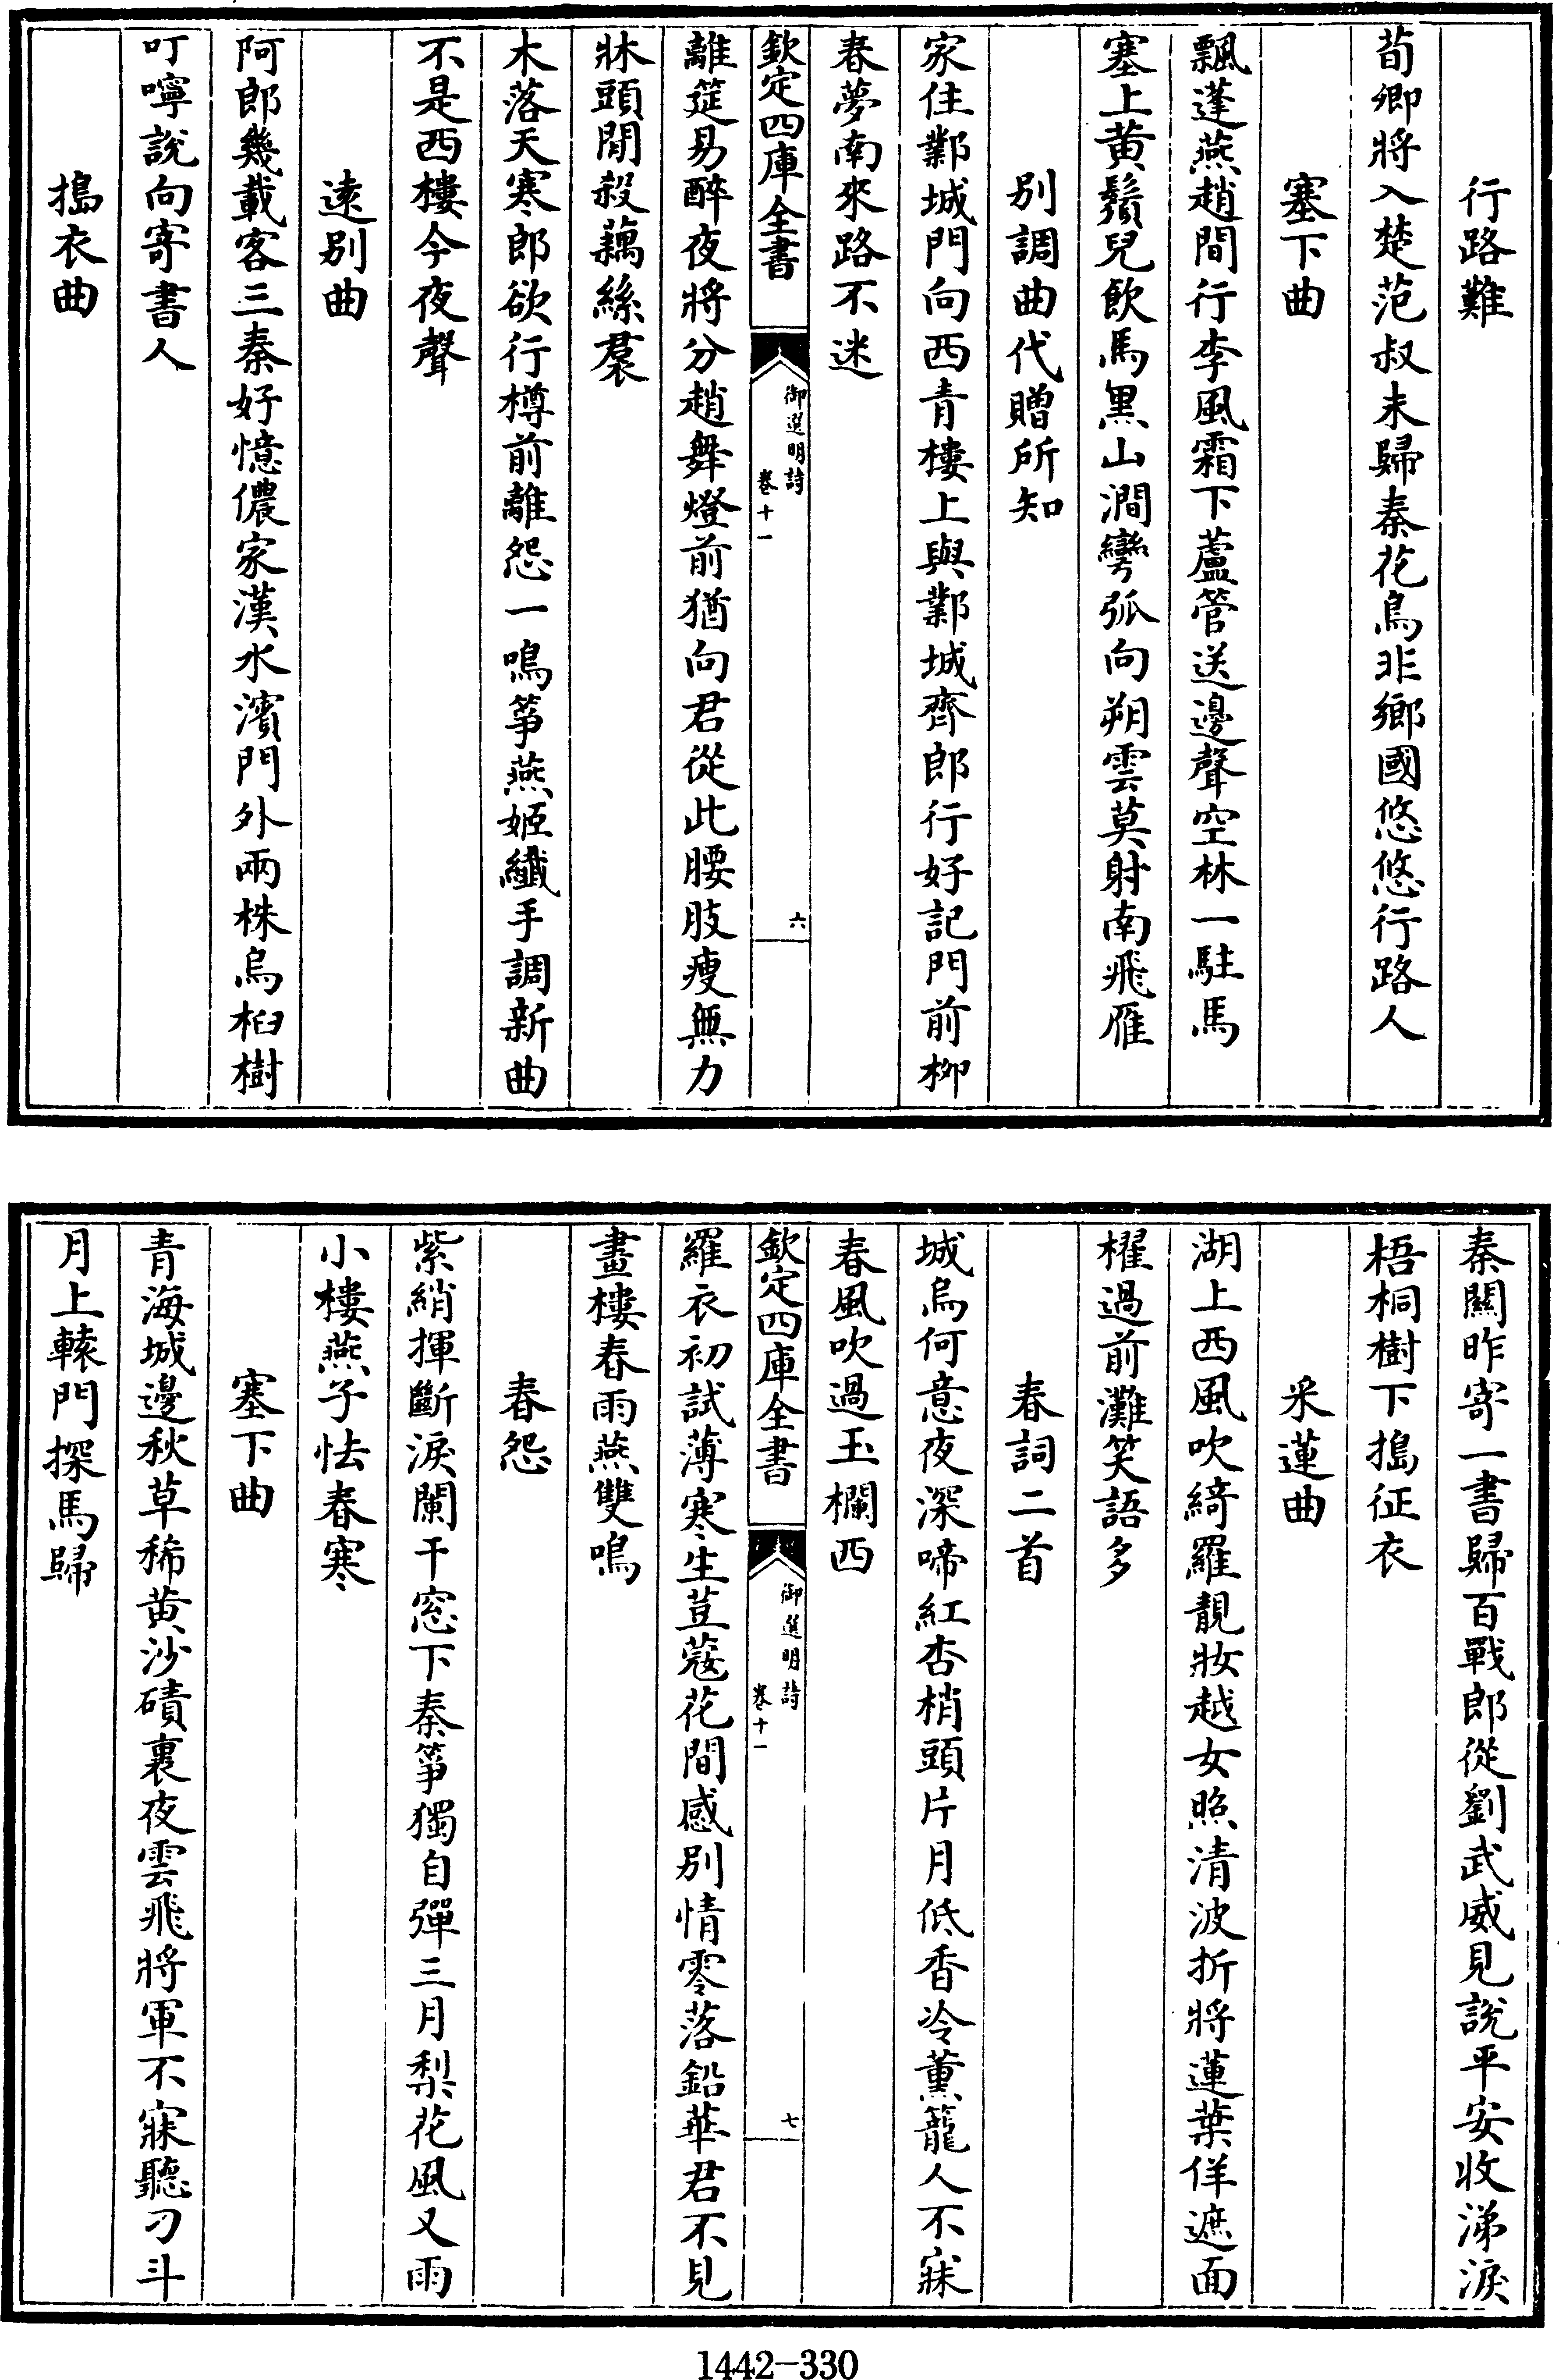 行路難
荀卿將入楚范叔未歸秦花鳥非鄉國悠悠行路人
塞下曲
飄蓬燕趙間行李風霜下蘆管送邊聲空林一駐馬
塞上黃鬚兒飲馬黑山澗彎弧向朔雲莫射南飛雁
別調曲代贈所知
家住鄴城門向西青樓上與鄴城齊郎行好記門前柳
春夢南來路不迷
欽定四庫全書
御選明詩
卷十一
六
離筵易醉夜將分趙舞燈前猶向君從此腰肢瘦無力
牀頭閒殺藕絲裠
木落天寒郎欲行樽前離怨一鳴箏燕姬纖手調新曲
不是西樓今夜聲
遠別曲
阿郎幾載客三秦好憶儂家漢水濱門外兩株烏桕樹
叮嚀說向寄書人
搗衣曲
秦關昨寄一書歸百戰郎從劉武威見說平安收涕淚
梧桐樹下搗征衣
采蓮曲
湖上西風吹綺羅靚妝越女照清波折將蓮葉佯遮面
櫂過前灘笑語多
春詞二首
城烏何意夜深啼紅杏梢頭片月低香冷薰籠人不寐
春風吹過玉欄西
欽定四庫全書
御選明詩
卷十一
七
羅衣初試薄寒生荳蔻花間感別情零落鉛華君不見
畫樓春雨燕雙鳴
春怨
紫綃揮斷淚闌干窓下秦箏獨自彈三月梨花風又雨
小樓燕子怯春寒
塞下曲
青海城邊秋草稀黃沙磧裏夜雲飛將軍不寐聽刁斗
月上轅門探馬歸
1442-330